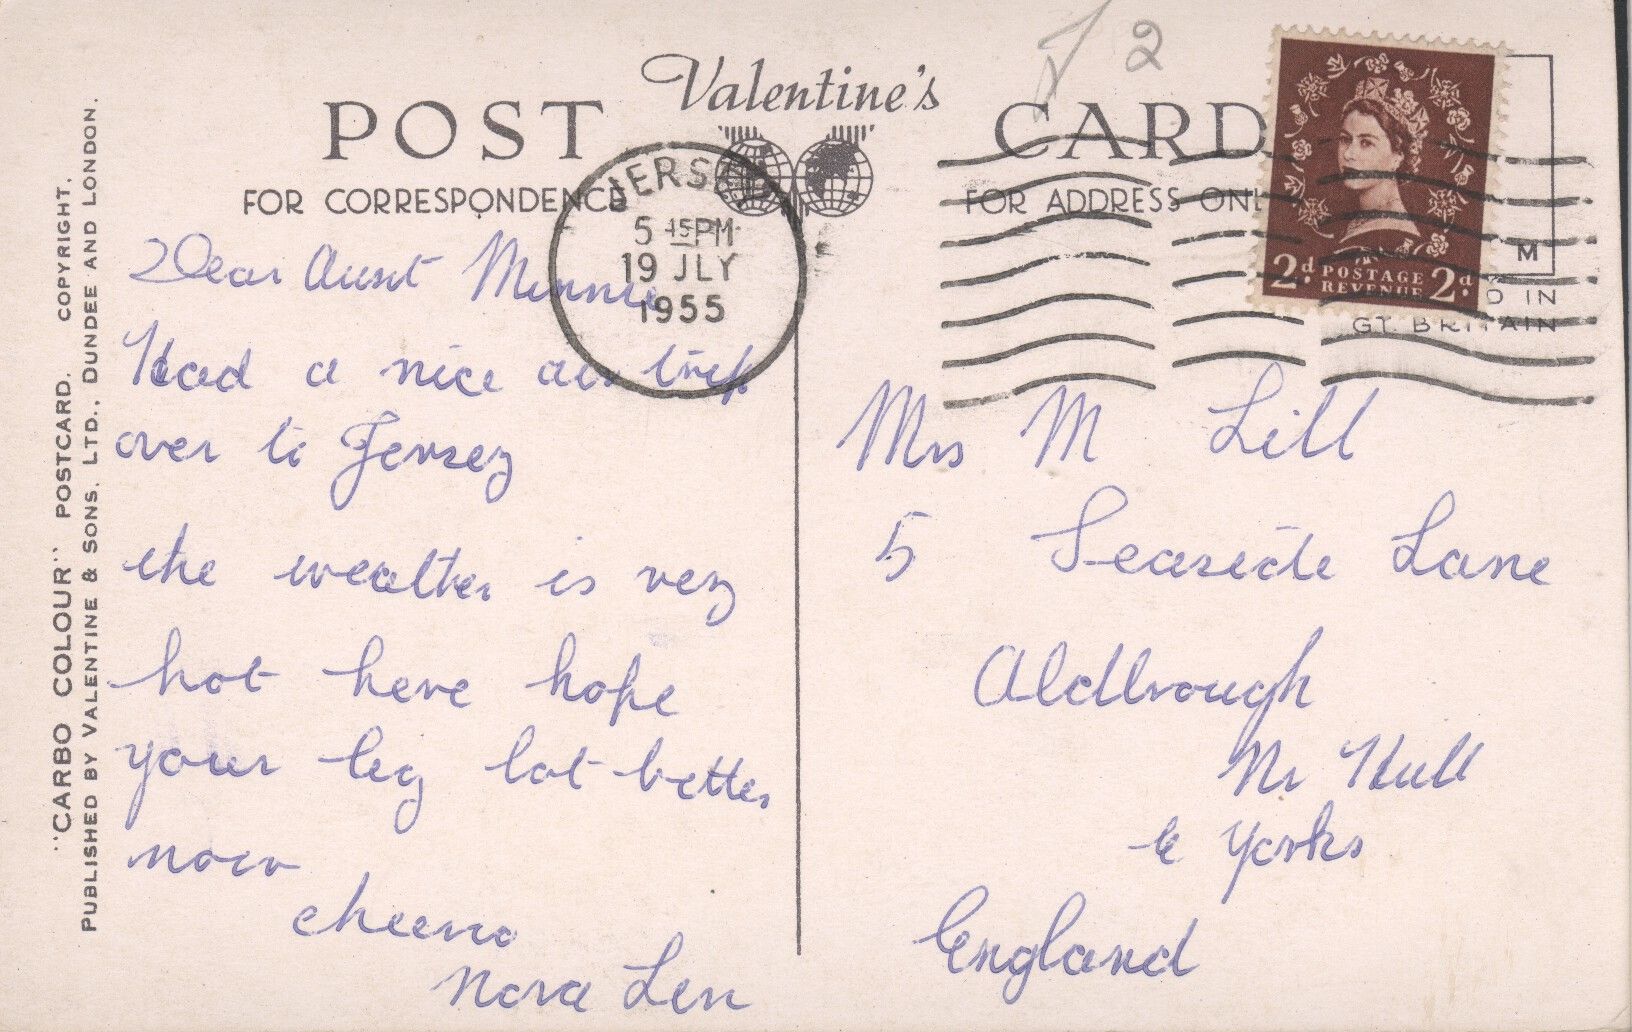 "CARBO COLOUR" POSTCARD. COPYRIGHT.
PUBLISHED BY VALENTINE & SONS. LTD., DUNDEE AND LONDON.
Valentine's
POST CARD
FOR CORRESPONDENCE
FOR ADDRESS ONL
2
JERSEY
5 15 PM
19 JLY
1955
2d POSTAGE 2d
REVENUE
M
D IN
GT. BRITAIN
Dear Aunt Minnie
Had a nice air trip
over to Jersey
the weather is very
hot here hope
your leg lot better
now
cheerio
Nora Len
Mrs M Lill
5 Seaside Lane
Aldbrough
Nr Hull
E Yorks
England